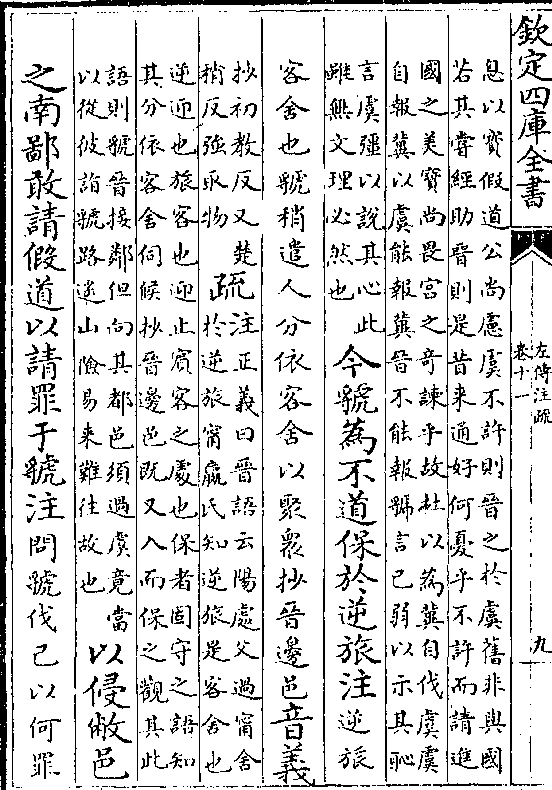 欽定四庫全書
左傳注疏
卷十一
九
息以寳假道公尚慮虞不許則晉之於虞舊非與國
若其嘗經助晉則是昔来通好何憂乎不許而請進
國之美寳尚畏宫之竒諫乎故杜以為冀自伐虞虞
自報冀以虞能報冀晉不能報虢言已弱以示其恥
言虞彊以説其心此
雖無文理必然也
今虢為不道保於逆旅注逆旅
客舎也虢稍遣人分依客舎以聚衆抄晉邉邑音義
抄初教反又楚
稍反强取物
疏
注正義曰晉語云陽處父過甯舎
於逆旅甯嬴氏知逆旅是客舎也
逆迎也旅客也迎止賔客之處也保者固守之語知
其分依客舎伺候抄晉邉邑既又入而保之觀其此
語則虢晉接鄰但向其都邑須過虞竟當
以從彼詣虢路迷山險易来難往故也
以侵敝邑
之南鄙敢請假道以請罪于虢注問虢伐已以何罪